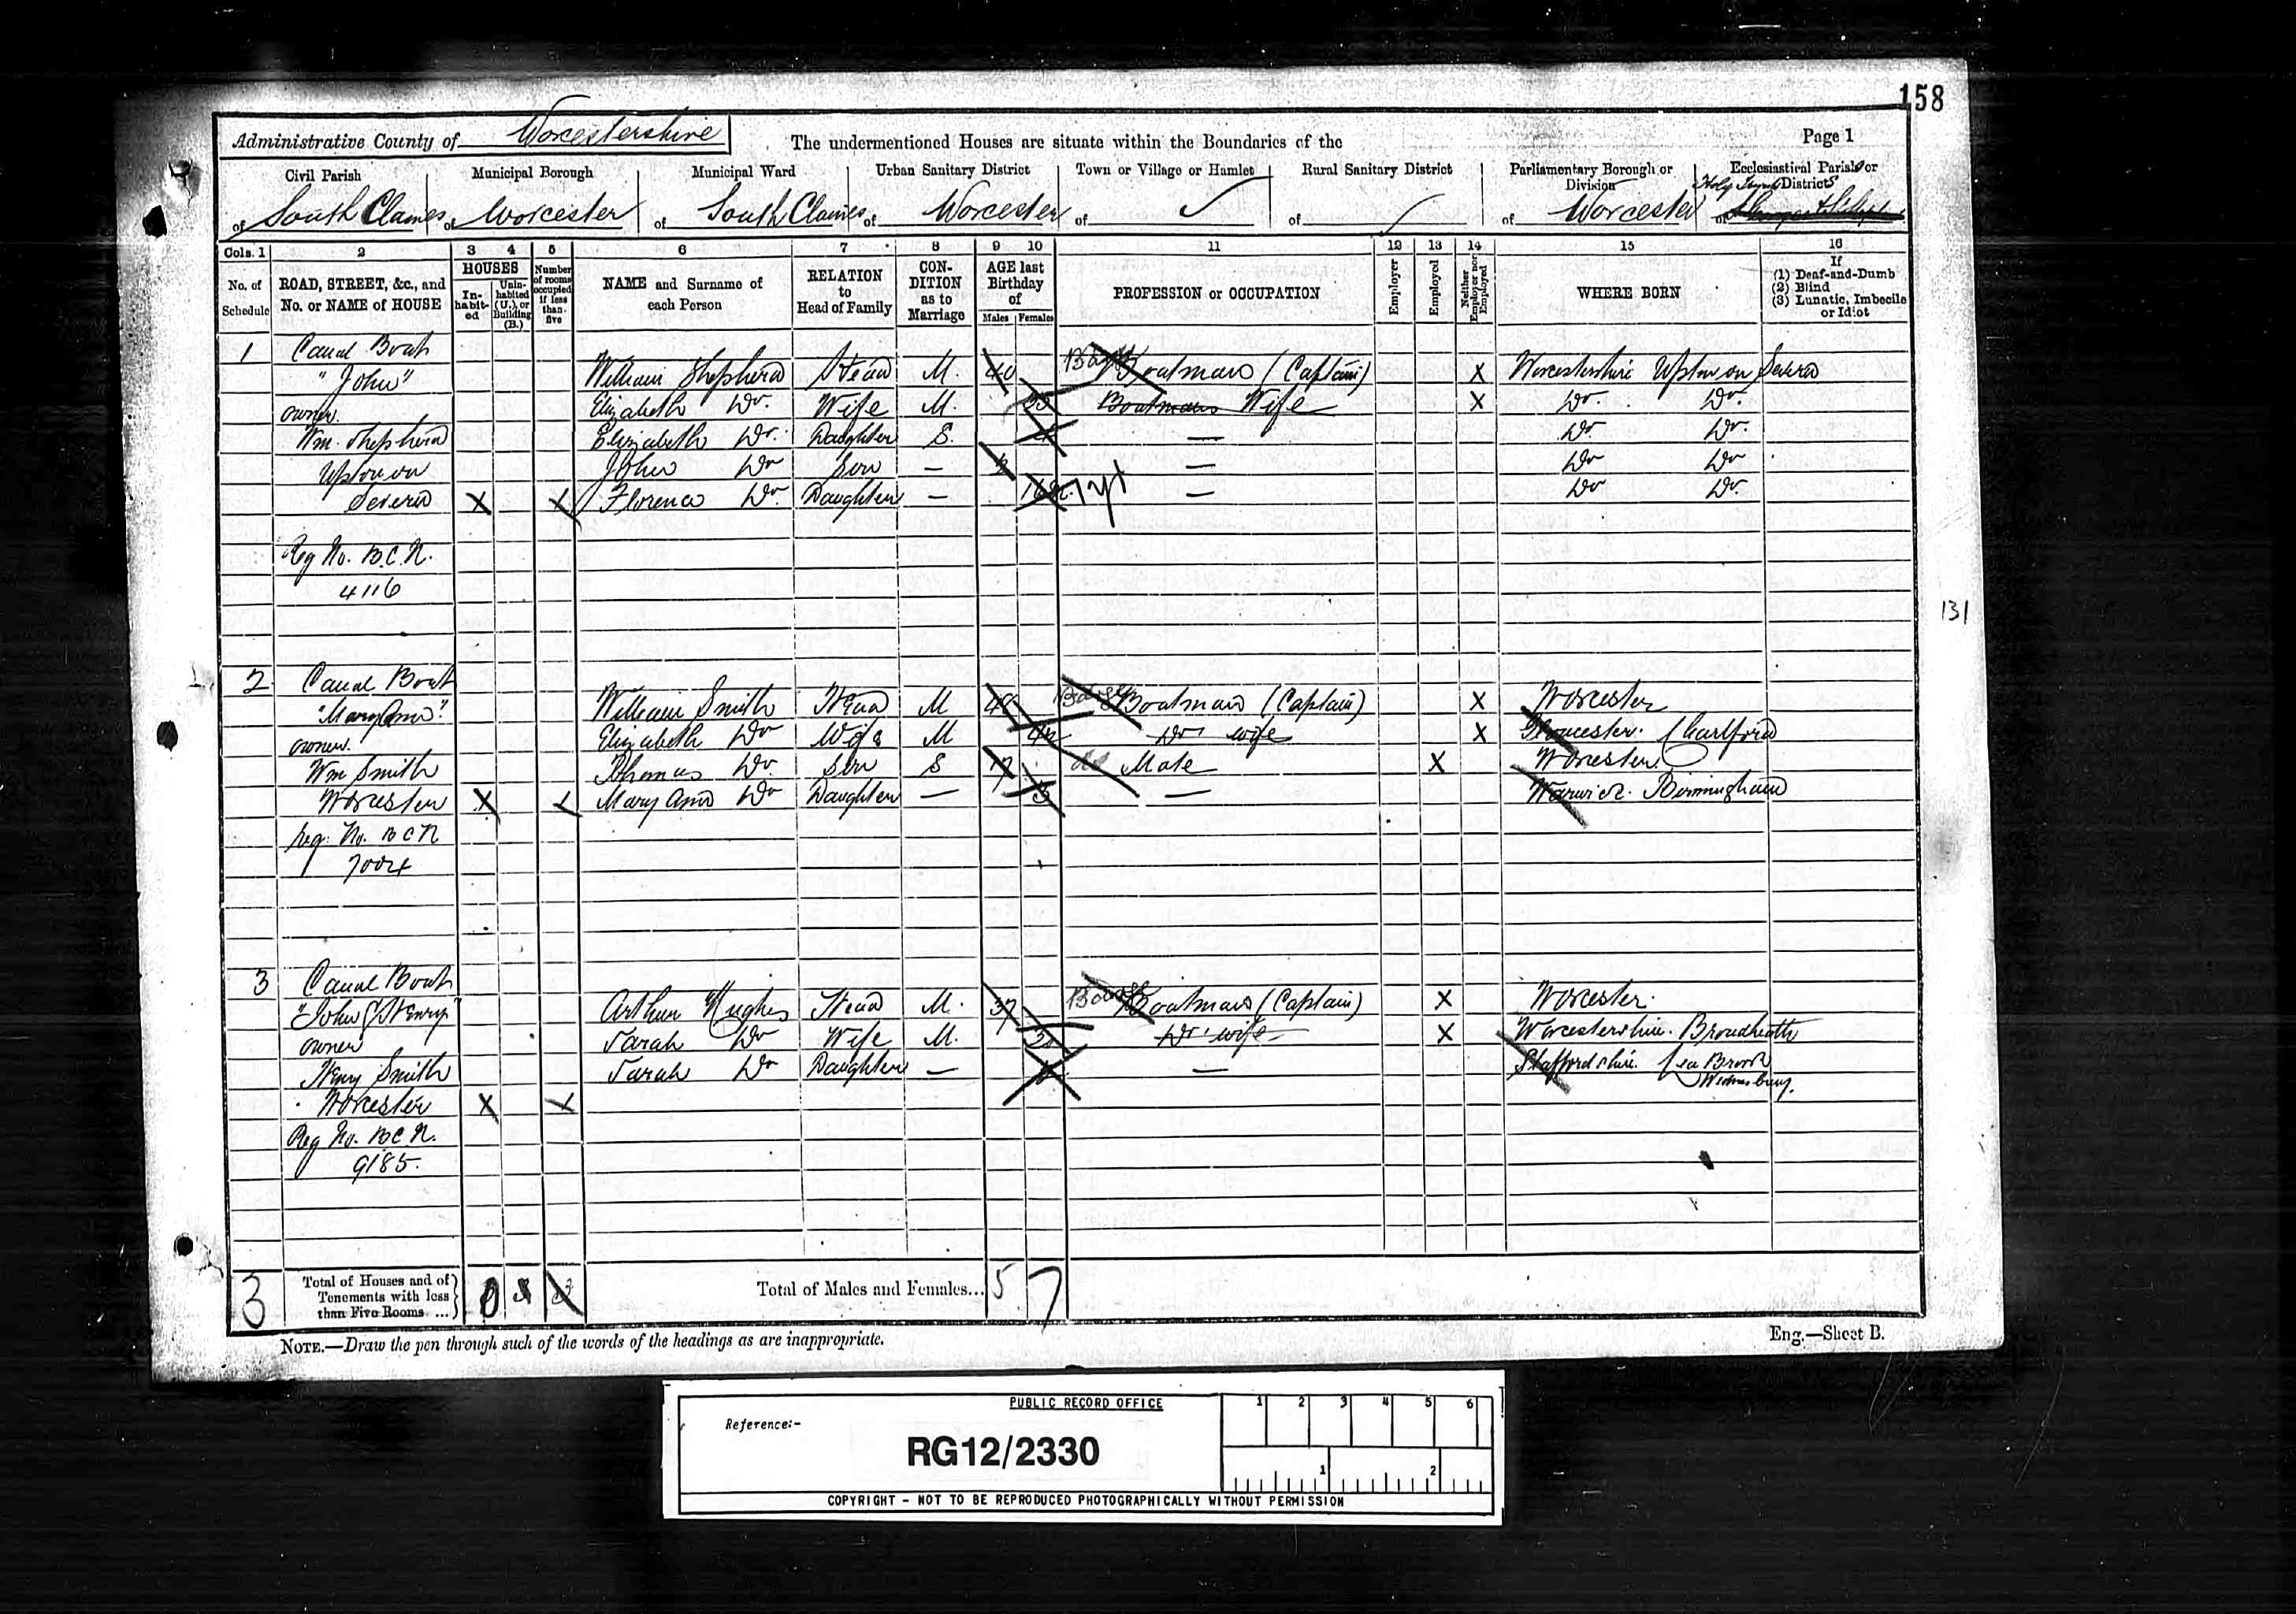 158
Administrative County of Worcestershire
The undermentioned Houses are situate within the Boundaries of the
Page 1
Civil Parish
Municipal Borough
Municipal Ward
Urban Sanitary District
Town or Village or Hamlet
Rural Sanitary District
Parliamentary Borough or Division
Ecclesiastical Parish or District
of South Claines
of Worcester
of South Claines
of Worcester
of
of
of Worcester
of Holy
Cols. 1 2 3 4 5 6 7 8 9 10 11 12 13 14 15 16
No. of Schedule
ROAD, STREET, &c., and No. or NAME of HOUSE
HOUSES
Inhabited
Uninhabited (U.), or Building (B.)
Number of rooms occupied if less than five
NAME and Surname of each Person
RELATION to Head of Family
CONDITION as to Marriage
AGE last Birthday of
Males Females
PROFESSION or OCCUPATION
Employer
Employed
Neither Employer nor Employed
WHERE BORN
If
(1) Deaf-and-Dumb
(2) Blind
(3) Lunatic, Imbecile or Idiot
1 Canal Boat
"John" William Shepherd Head M. 40 Boatman (Captain) X Worcestershire Upton on Severn
owner. Elizabeth Do. Wife M. Boatmans Wife X Do. Do.
Wm. Shepherd Elizabeth Do. Daughter S. — Do. Do.
Upton on John Do Son — — Do Do
Severn X Florence Do. Daughter — 7 — Do Do.
Reg No. B.C.N.
4116
131
2 Canal Boat
"Mary Ann". William Smith Head M Barge Boatman (Captain) X Worcester
owner. Elizabeth Do Wife M Do wife X Gloucester. Chalford
Wm Smith Thomas Do. Son S 17 do Mate X Worcester.
Worcester X Mary Ann Do Daughter — 3 — Warwick. Birmingham
Reg. No. B C N
7004
3 Canal Boat
"John & Henry" Arthur Hughes Head M. 37 Barge Boatman (Captain) X Worcester.
owner Sarah Do Wife M. Do. wife X Worcestershire. Broadheath
Henry Smith Sarah Do Daughter — — Staffordshire. Lea Brook
Wednesbury.
Worcester X
Reg No. B C N.
9185.
3
Total of Houses and of Tenements with less than Five Rooms ...
Total of Males and Females... 5 7
NOTE.—Draw the pen through such of the words of the headings as are inappropriate.
Eng.—Sheet B.
PUBLIC RECORD OFFICE
Reference:-
RG12/2330
1 2 3 4 5 6
1 2
COPYRIGHT - NOT TO BE REPRODUCED PHOTOGRAPHICALLY WITHOUT PERMISSION